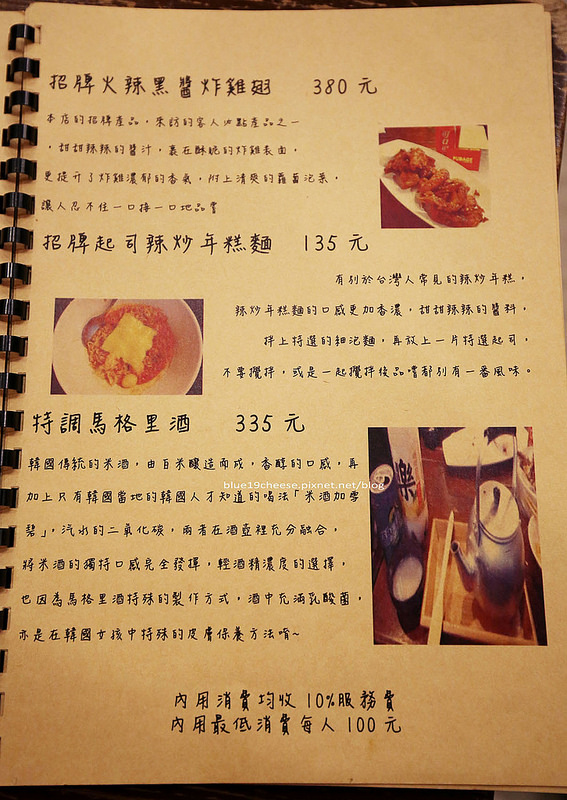 招牌火辣黑醬炸雞翅 380 元
本店的招牌產品,來訪的客人必點產品之一
,甜甜辣辣的醬汁,裹在酥脆的炸雞表面,
更提升了炸雞濃郁的香氣,附上清爽的蘿蔔泡菜,
讓人忍不住一口接一口地品嘗
招牌起司辣炒年糕麵 135 元
有別於台灣人常見的辣炒年糕,
辣炒年糕麵的口感更加香濃,甜甜辣辣的醬料,
拌上特選的細泡麵,再放上一片特選起司,
不要攪拌,或是一起攪拌後品嚐都別有一番風味。
特調馬格里酒 335 元
韓國傳統的米酒,由白米釀造而成,香醇的口感,再
blue19cheese.pixnet.net/blog
加上只有韓國當地的韓國人才知道的喝法「米酒加雪
碧」,汽水的二氧化碳,兩者在酒壺裡充分融合,
將米酒的獨特口感完全發揮,輕酒精濃度的選擇,
也因為馬格里酒特殊的製作方式,酒中充滿乳酸菌,
亦是在韓國女孩中特殊的皮膚保養方法唷~
內用消費均收 10%服務費
內用最低消費每人 100 元